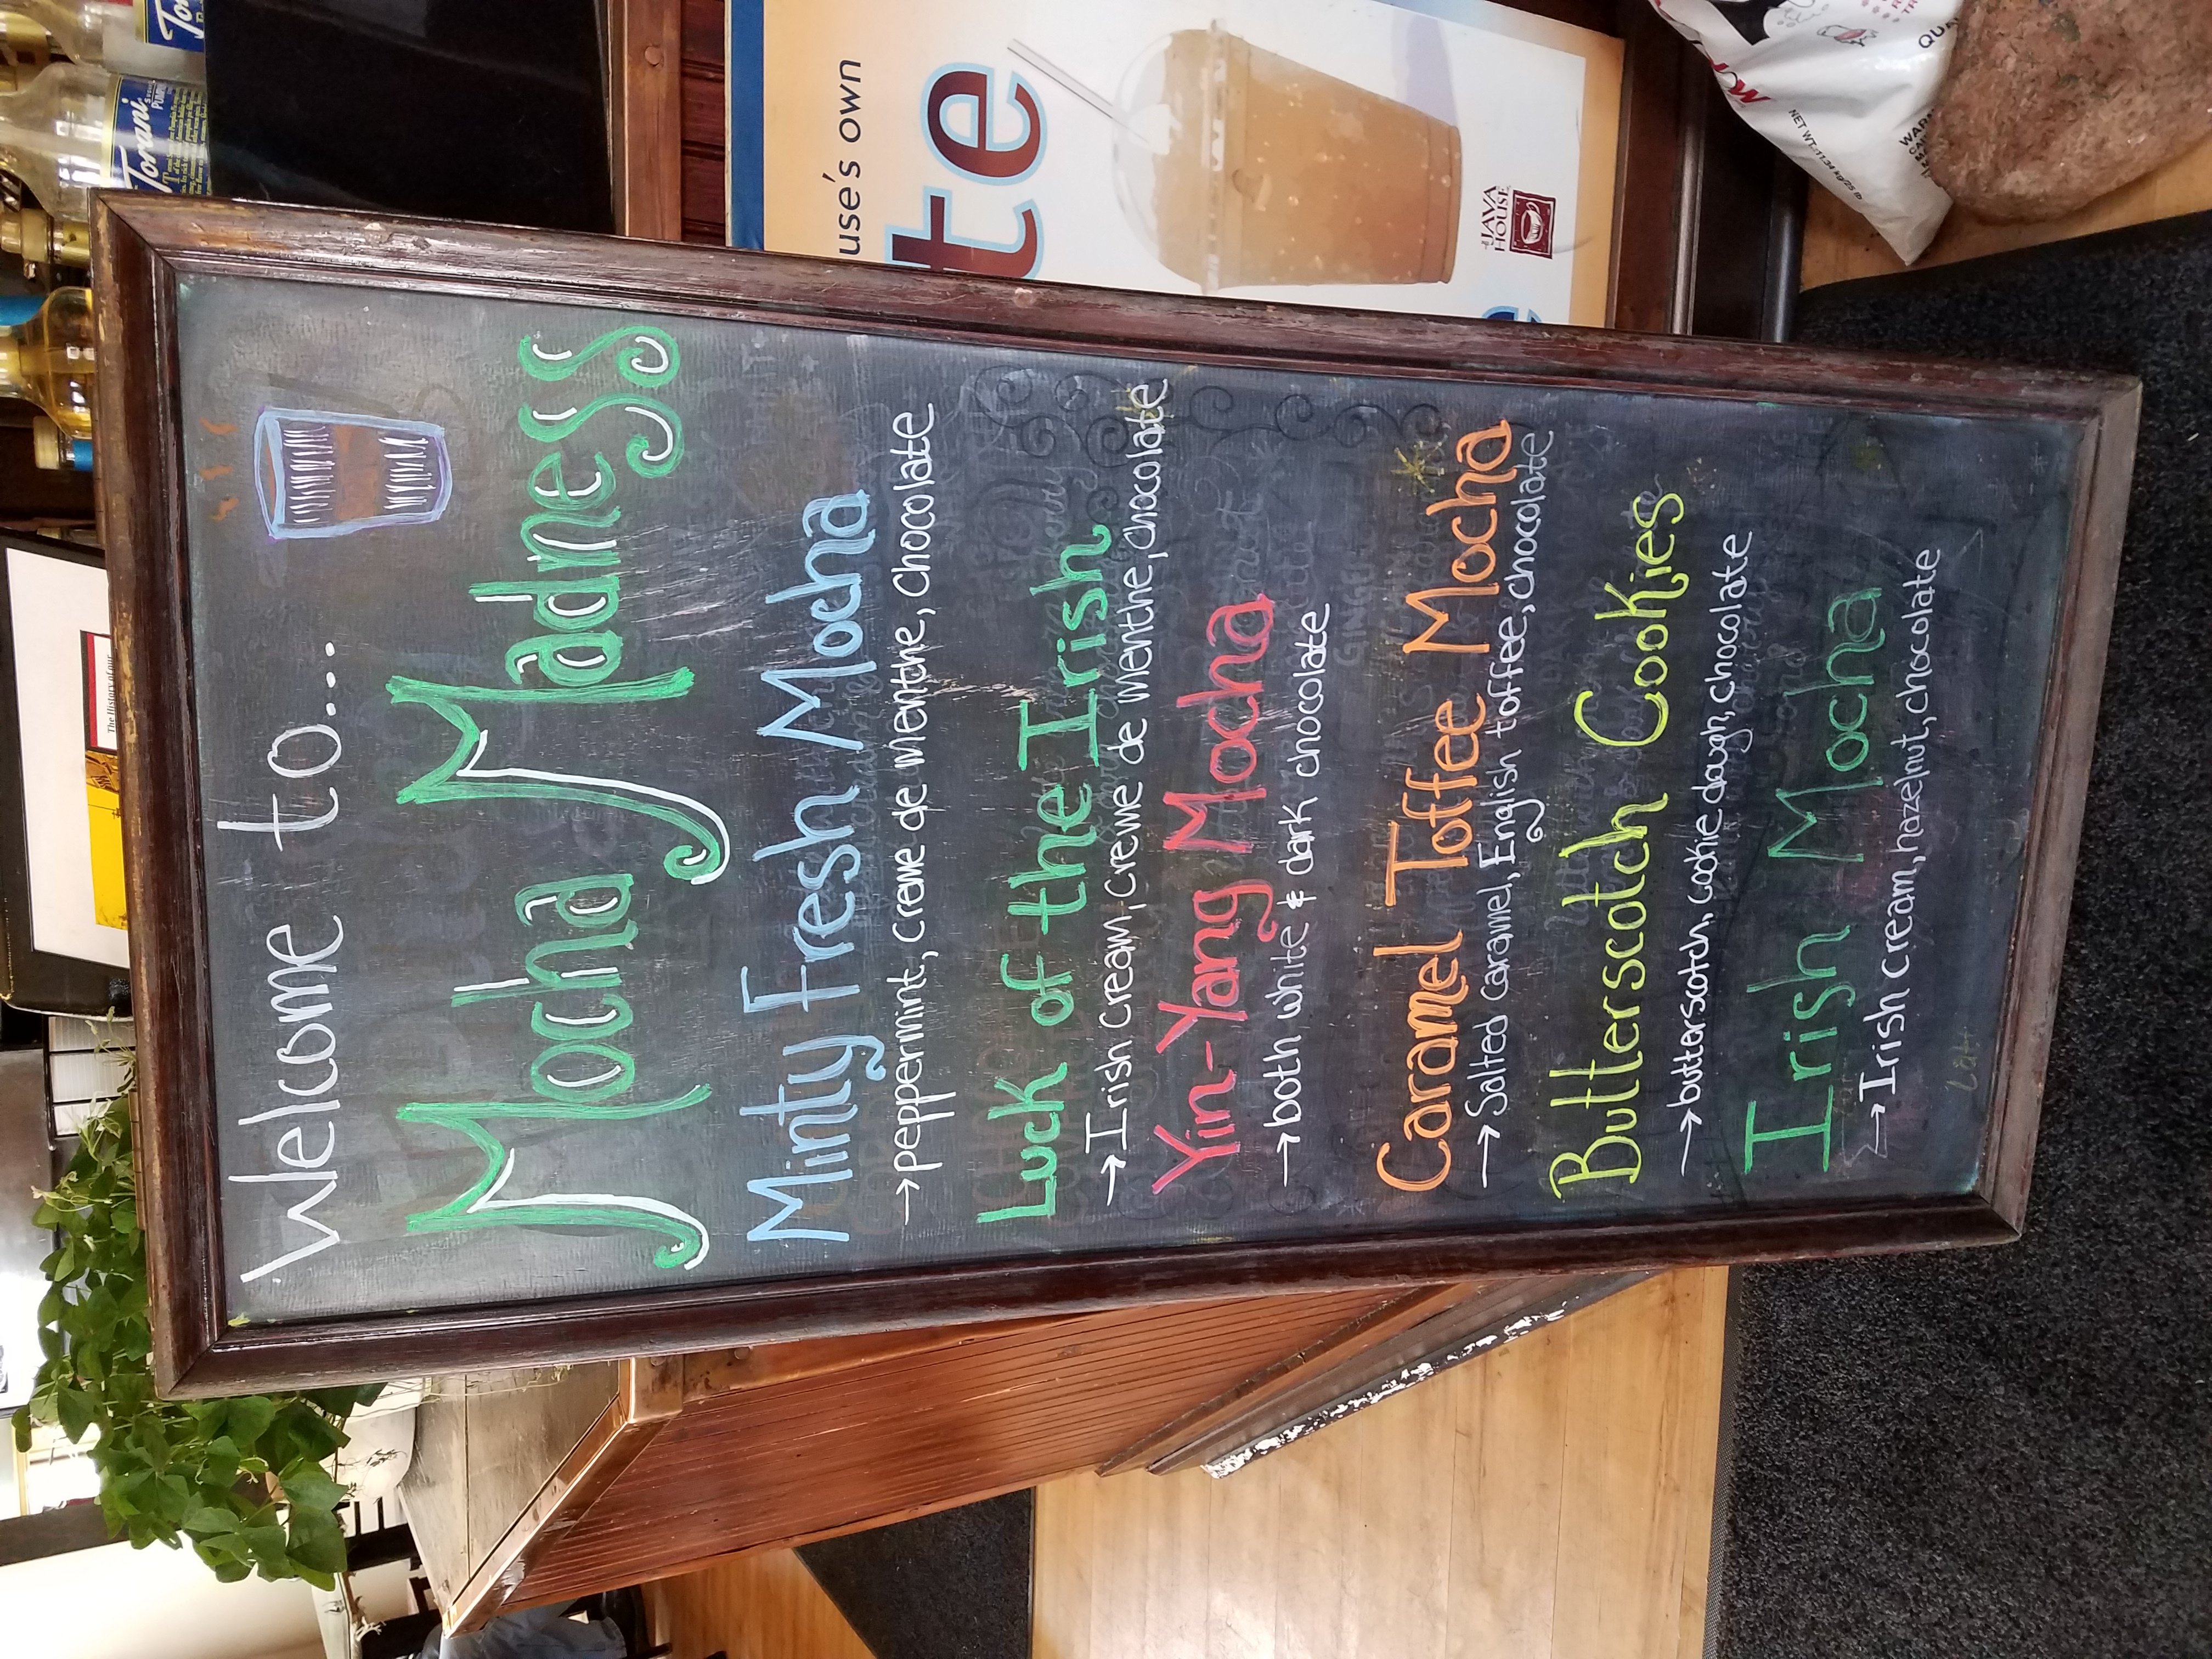 Welcome to...
Mocha Madness
Minty Fresh Mocha
→peppermint, creme de menthe, chocolate
Luck of the Irish
→Irish Cream, creme de menthe, chocolate
Yin-Yang Mocha
→both white & dark chocolate
Caramel Toffee Mocha
→Salted Caramel, English toffee, chocolate
Butterscotch Cookies
→butterscotch, cookie dough, chocolate
Irish Mocha
→Irish Cream, hazelnut, chocolate
Torani
use's own
te
JAVA
HOUSE
NET WT. 11.34 kg/25 lb
The History of our